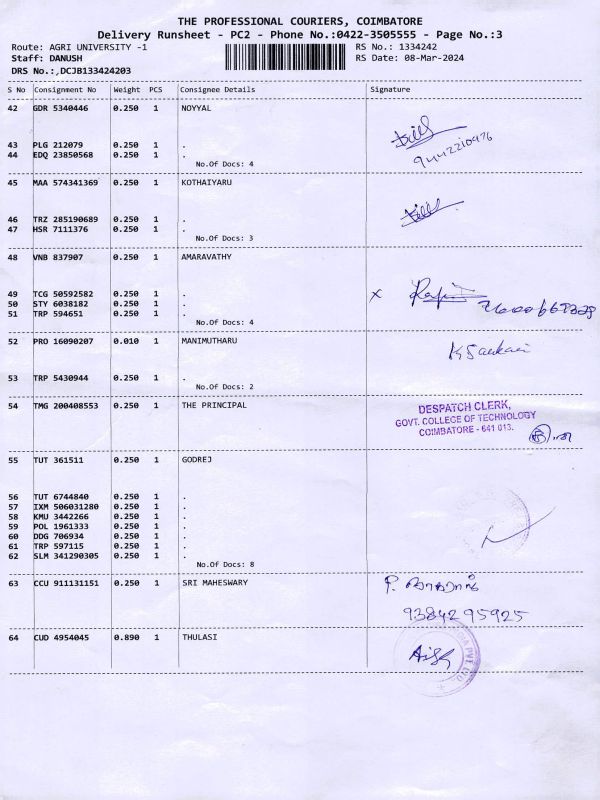 THE PROFESSIONAL COURIERS, COIMBATORE
Delivery Runsheet - PC2 - Phone No.:0422-3505555 - Page No.:3
Route: AGRI UNIVERSITY -1 RS No.: 1334242
Staff: DANUSH RS Date: 08-Mar-2024
DRS No.:,DCJB133424203
S No Consignment No Weight PCS Consignee Details Signature
42 GDR 5340446 0.250 1 NOYYAL
43 PLG 212079 0.250 1 .
44 EDQ 23850568 0.250 1 .
9442210976
No.Of Docs: 4
45 MAA 574341369 0.250 1 KOTHAIYARU
46 TRZ 285190689 0.250 1 .
47 HSR 7111376 0.250 1 .
No.Of Docs: 3
48 VNB 837907 0.250 1 AMARAVATHY
49 TCG 50592582 0.250 1 .
50 STY 6038182 0.250 1 .
51 TRP 594651 0.250 1 .
No.Of Docs: 4
52 PRO 16090207 0.010 1 MANIMUTHARU
53 TRP 5430944 0.250 1 .
No.Of Docs: 2
54 TMG 200408553 0.250 1 THE PRINCIPAL
DESPATCH CLERK,
GOVT. COLLEGE OF TECHNOLOGY
COIMBATORE - 641 013.
55 TUT 361511 0.250 1 GODREJ
56 TUT 6744840 0.250 1 .
57 IXM 506031280 0.250 1 .
58 KMU 3442266 0.250 1 .
59 POL 1961333 0.250 1 .
60 DDG 706934 0.250 1 .
61 TRP 597115 0.250 1 .
62 SLM 341290305 0.250 1 .
No.Of Docs: 8
63 CCU 911131151 0.250 1 SRI MAHESWARY
9384295925
64 CUD 4954045 0.890 1 THULASI